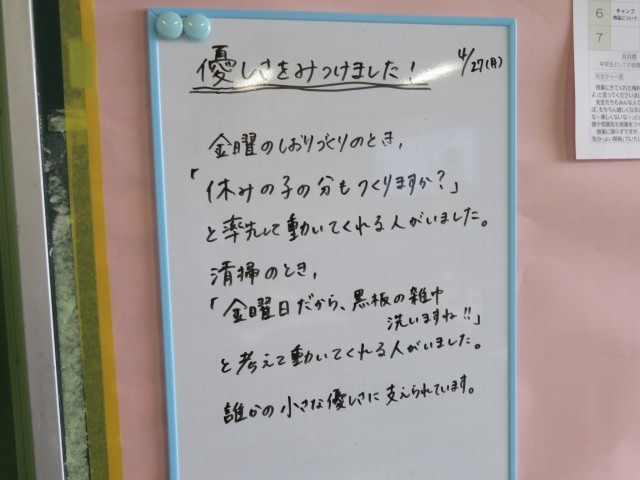 優しさをみつけました!
4/27(月)
金曜のしおりづくりのとき,
「休みの子の分もつくりますか?」
と率先して動いてくれる人がいました。
清掃のとき,
「金曜日だから、黒板の雑巾
洗いますね!!」
と考えて動いてくれる人がいました。
誰かの小さな優しさに支えられています。
6
7
キャンプ
月目標
先生から一言